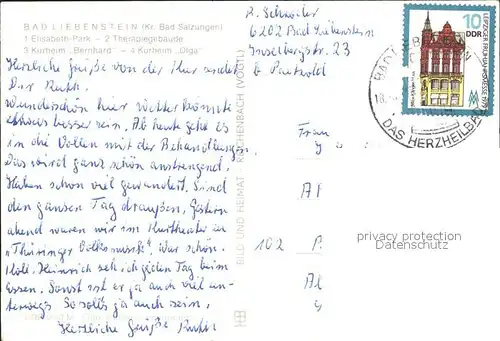 BAD LIEBENSTEIN (Kr. Bad Salzungen)
1 Elisabeth-Park – 2 Therapiegebäude
3 Kurheim „Bernhard“ – 4 Kurheim „Olga“
Herzliche Grüße von der Kur sendet
Dir Ruth.
Wunderschön hier Wetter könnte
etwas besser sein. Ab heute geht es
in die Vollen mit der Behandlungen
Das wird ganz schön anstrengend.
Haben schon viel gewandert. Sind
den ganzen Tag draußen. Gestern
abend waren wir im Kurtheater zu
„Thüringer Volksmusik“. War schön.
Koll. Heinrich seh ich jeden Tag beim
Essen. Sonst ist er ja auch viel un-
terwegs So soll's ja auch sein.
Herzliche Grüße Ruth
BILD UND HEIMAT REICHENBACH (VOGTL)
R. Schröder
6202 Bad Liebenstein
Inselbergstr. 23
b
Frau
102
privacy protection
Datenschutz
10
DDR
LEIPZIGER FRÜHJAHRSMESSE
BAD
DAS HERZHEILBAD